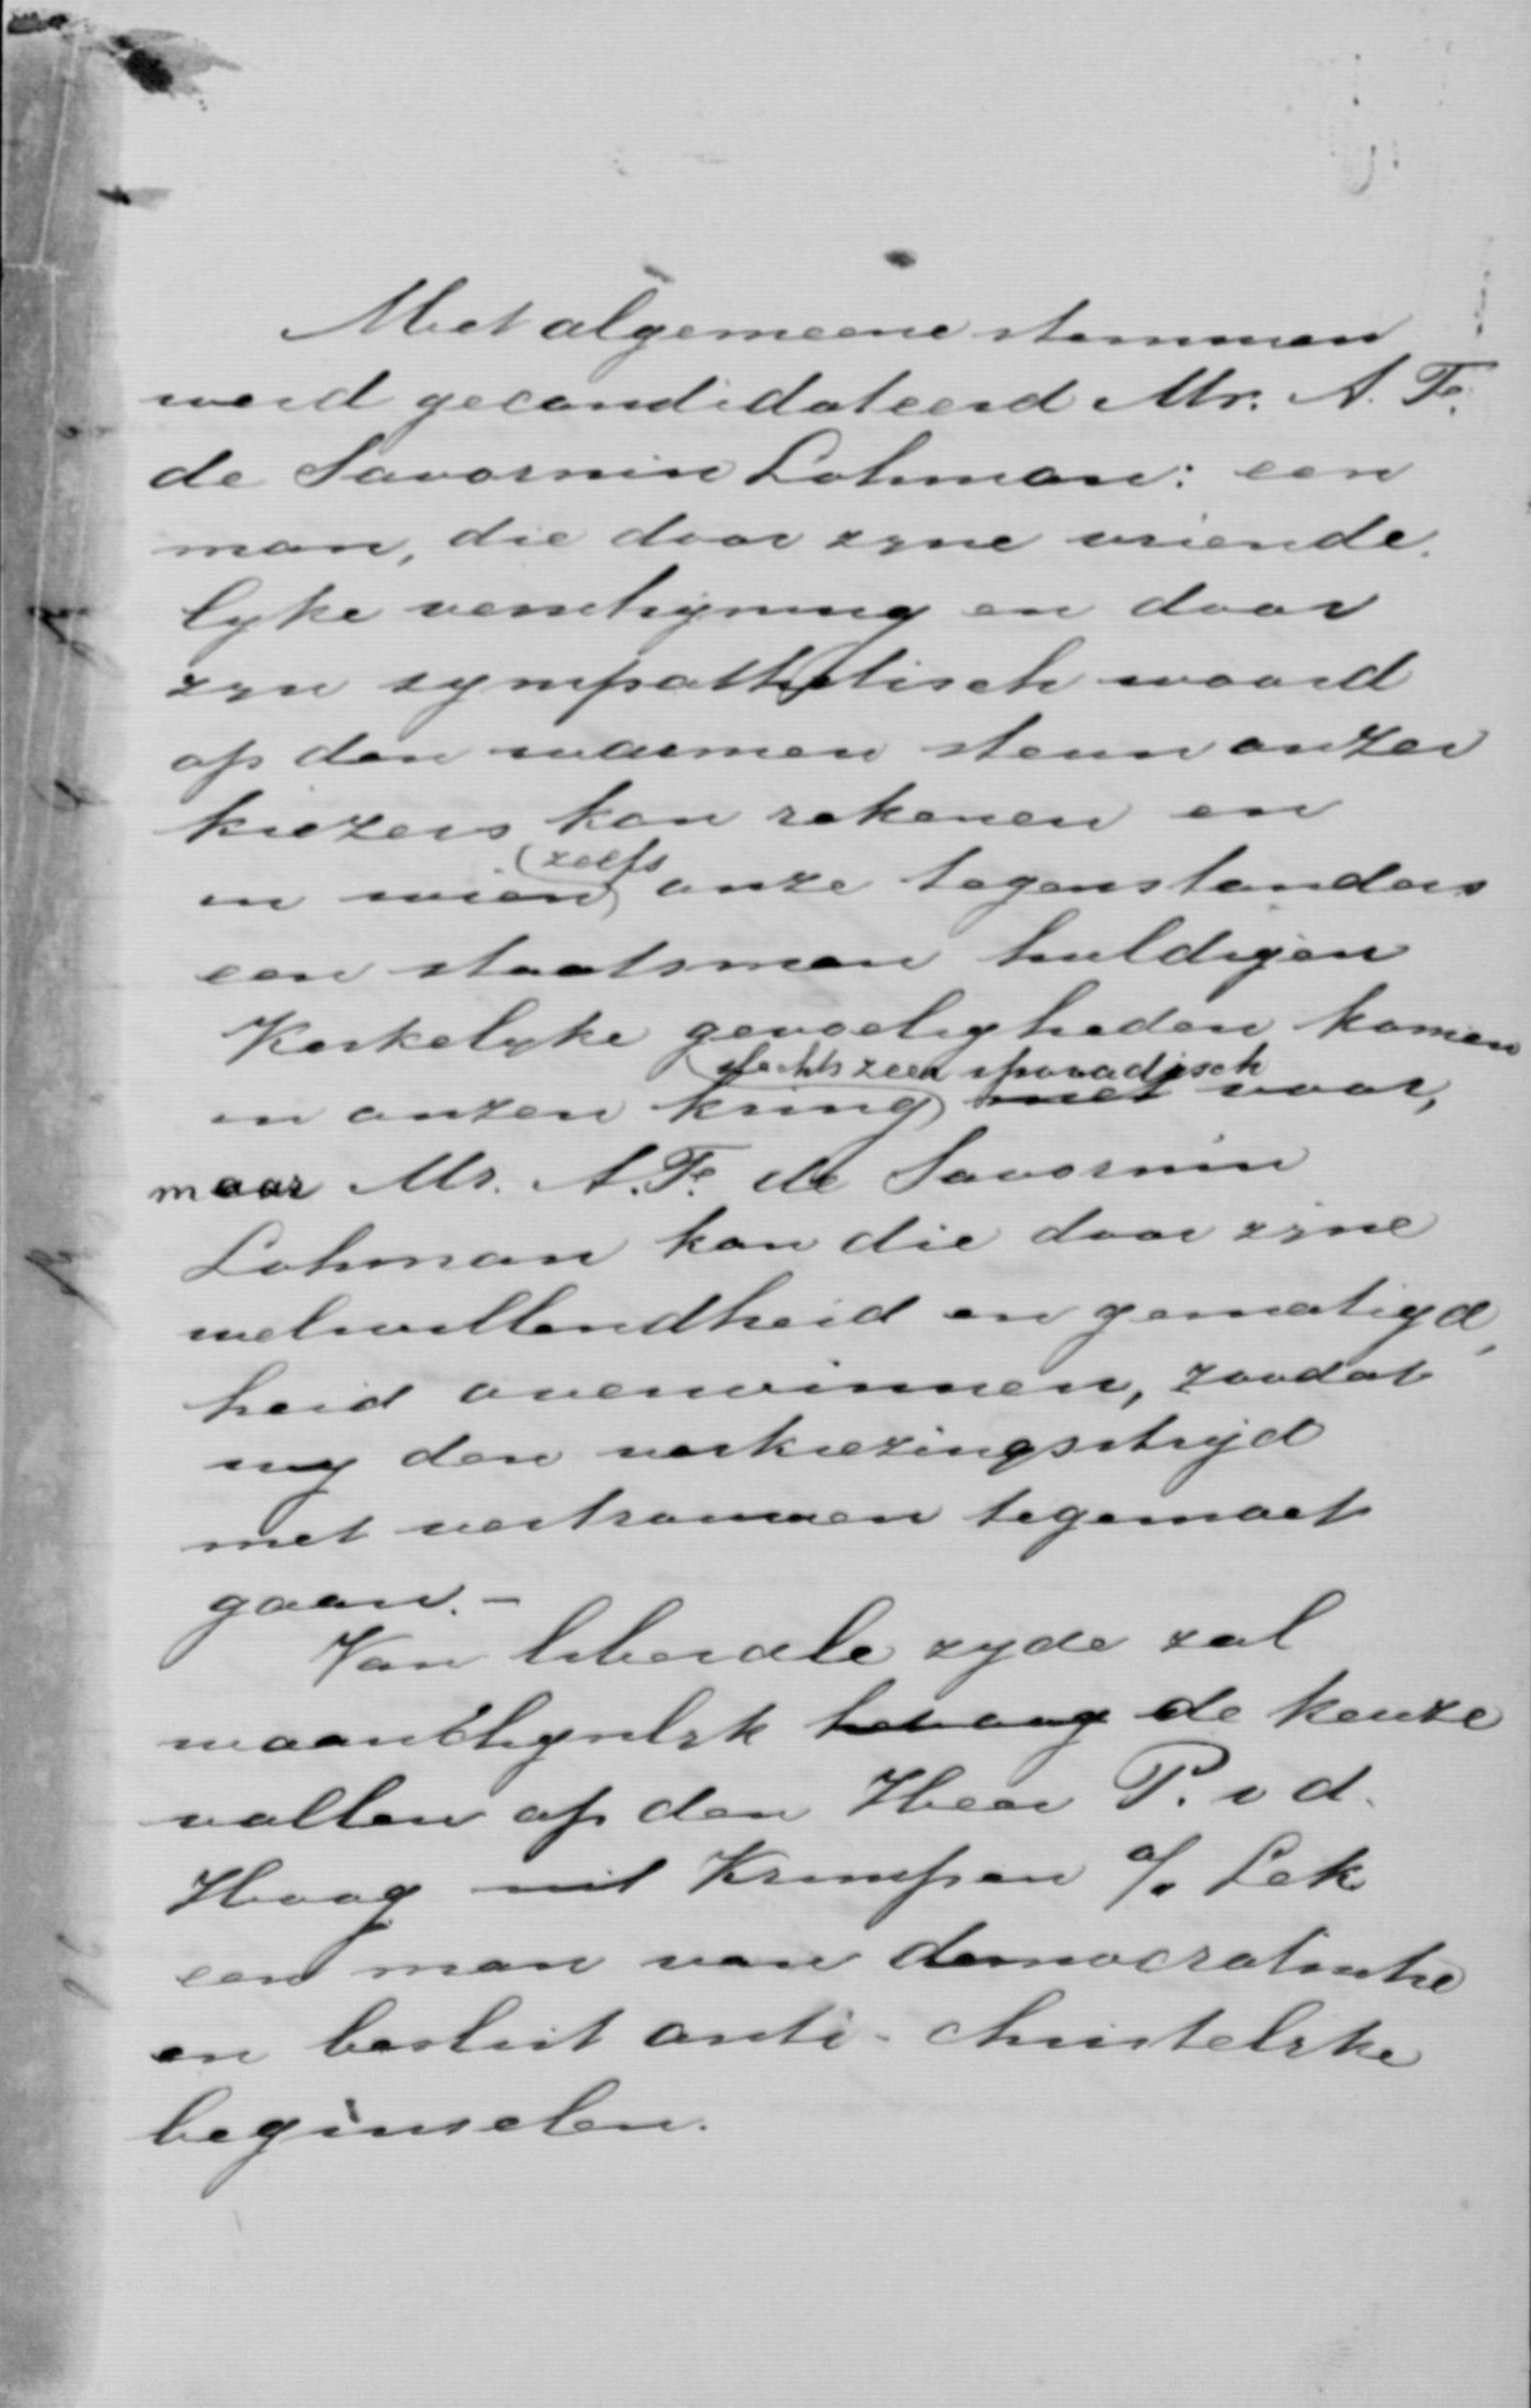 Met algemeene stemmen
werd gecandidateerd Mr. A. F.
de Savornin Lohman: een
man, die door zyne vriende
lyke verschyning en door
zyn sympathetisch woord
op den warmen steun onzer
kiezers kan rekenen en
in wien zelfs onze tegenstanders
een staatsman huldigen
Kerkelyke gevoeligheden komen
slechts zeer sporadisch
in onzen kring niet voor,
maar Mr. A. F. de Savornin
Lohman kan die door zyne
welwillendheid en gematigd,
heid overwinnen, zoodat
wy den verkiezingsstryd
met vertrouwen tegemoet
gaan. -
Van liberale zyde zal
waarschynlyk de keuze
vallen op den Heer P. v d.
Hoog uit Krimpen a/d Lek
een man van democratische
en beslist anti-christelyke
beginselen.